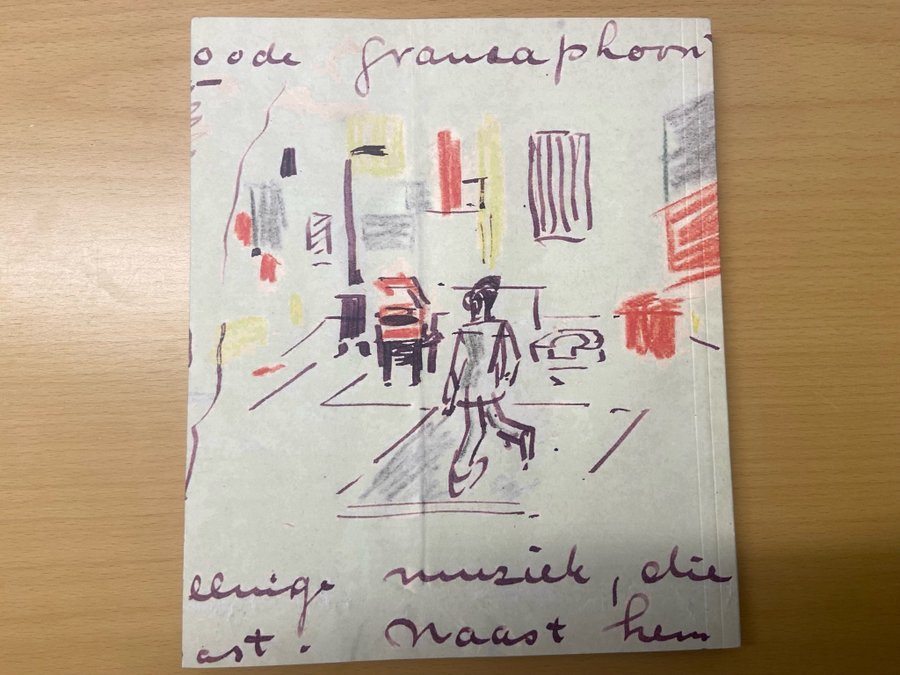 oode gramaphoon
eenige muziek, die
ast. Naast hem